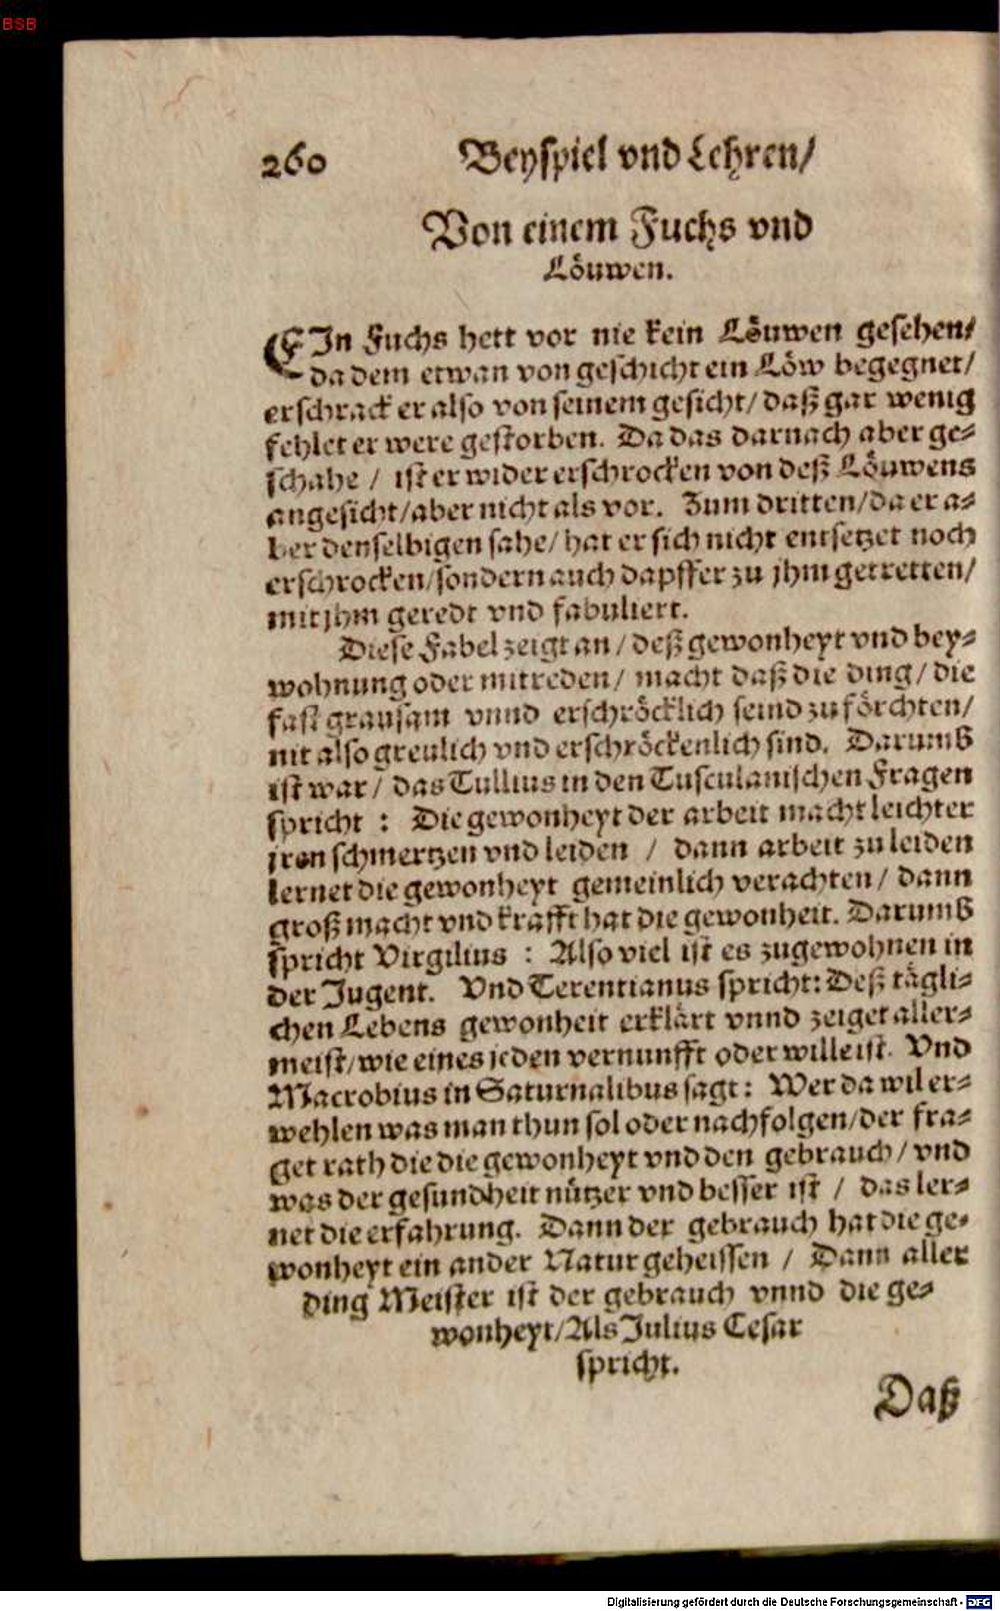 BSB
260 Beyspiel vnd Lehren/
Von einem Fuchs vnd
Löuwen.
EIn Fuchs hett vor nie kein Löuwen gesehen/
da dem etwan von geschicht ein Löw begegnet/
erschrack er also von seinem gesicht/ daß gar wenig
fehlet er were gestorben. Da das darnach aber ge-
schahe / ist er wider erschrocken von deß Löuwens
angesicht/ aber nicht als vor. Zum dritten/ da er a-
ber denselbigen sahe/ hat er sich nicht entsetzet noch
erschrocken/ sondern auch dapffer zu jhm getretten/
mit jhm geredt vnd fabuliert.
Diese Fabel zeigt an / deß gewonheyt vnd bey-
wohnung oder mitreden/ macht daß die ding/ die
fast grausam vnnd erschröcklich seind zu förchten/
nit also greulich vnd erschröckenlich sind. Darumb
ist war/ das Tullius in den Tusculanischen Fragen
spricht : Die gewonheyt der arbeit macht leichter
jren schmertzen vnd leiden / dann arbeit zu leiden
lernet die gewonheyt gemeinlich verachten/ dann
groß macht vnd krafft hat die gewonheit. Darumb
spricht Virgilius : Also viel ist es zugewohnen in
der Jugent. Vnd Terentianus spricht: Deß tägli-
chen Lebens gewonheit erklärt vnnd zeiget aller-
meist/ wie eines jeden vernunfft oder will eist. Vnd
Macrobius in Saturnalibus sagt: Wer da wil er-
wehlen was man thun sol oder nachfolgen/ der fra-
get rath die die gewonheyt vnd den gebrauch/ vnd
was der gesundheit nützer vnd besser ist / das ler-
net die erfahrung. Dann der gebrauch hat die ge-
wonheyt ein ander Natur geheissen / Dann aller
ding Meister ist der gebrauch vnnd die ge-
wonheyt/ Als Julius Cesar
spricht.
Daß
Digitalisierung gefördert durch die Deutsche Forschungsgemeinschaft - DFG